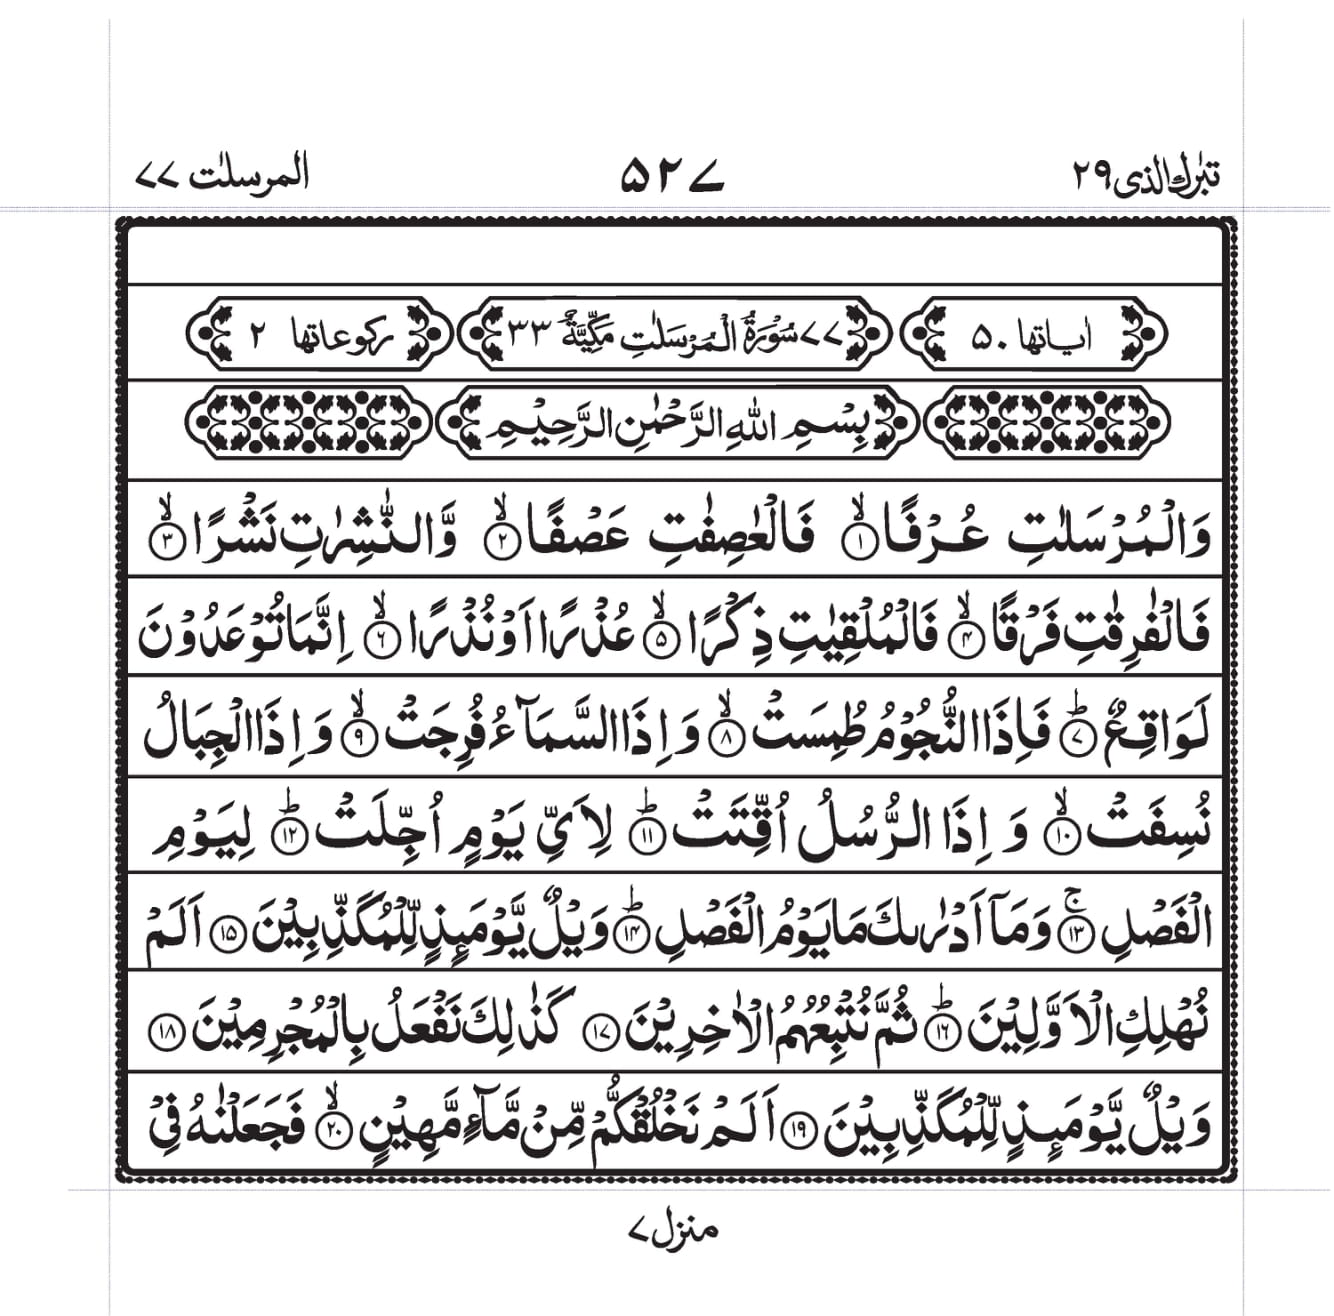 تبٰرك الذی ۲۹ ۵۲۷ المرسلٰت ۷۷
اٰیاتها ۵۰ ۷۷ سُوْرَةُ الْمُرْسَلٰتِ مَكِّيَّةٌ ۳۳ ركوعاتها ۲
بِسْمِ اللّٰهِ الرَّحْمٰنِ الرَّحِيْمِ
وَالْمُرْسَلٰتِ عُرْفًا ۙ﴿۱﴾ فَالْعٰصِفٰتِ عَصْفًا ۙ﴿۲﴾ وَّالنّٰشِرٰتِ نَشْرًا ۙ﴿۳﴾
فَالْفٰرِقٰتِ فَرْقًا ۙ﴿۴﴾ فَالْمُلْقِيٰتِ ذِكْرًا ۙ﴿۵﴾ عُذْرًا اَوْ نُذْرًا ۙ﴿۶﴾ اِنَّمَا تُوْعَدُوْنَ
لَوَاقِعٌ ؕ﴿۷﴾ فَاِذَا النُّجُوْمُ طُمِسَتْ ۙ﴿۸﴾ وَ اِذَا السَّمَآءُ فُرِجَتْ ۙ﴿۹﴾ وَ اِذَا الْجِبَالُ
نُسِفَتْ ۙ﴿۱۰﴾ وَ اِذَا الرُّسُلُ اُقِّتَتْ ؕ﴿۱۱﴾ لِاَيِّ يَوْمٍ اُجِّلَتْ ؕ﴿۱۲﴾ لِيَوْمِ
الْفَصْلِ ۚ﴿۱۳﴾ وَمَآ اَدْرٰىكَ مَا يَوْمُ الْفَصْلِ ؕ﴿۱۴﴾ وَيْلٌ يَّوْمَئِذٍ لِّلْمُكَذِّبِيْنَ ﴿۱۵﴾ اَلَمْ
نُهْلِكِ الْاَوَّلِيْنَ ؕ﴿۱۶﴾ ثُمَّ نُتْبِعُهُمُ الْاٰخِرِيْنَ ﴿۱۷﴾ كَذٰلِكَ نَفْعَلُ بِالْمُجْرِمِيْنَ ﴿۱۸﴾
وَيْلٌ يَّوْمَئِذٍ لِّلْمُكَذِّبِيْنَ ﴿۱۹﴾ اَلَمْ نَخْلُقْكُّمْ مِّنْ مَّآءٍ مَّهِيْنٍ ۙ﴿۲۰﴾ فَجَعَلْنٰهُ فِيْ
منزل ۷